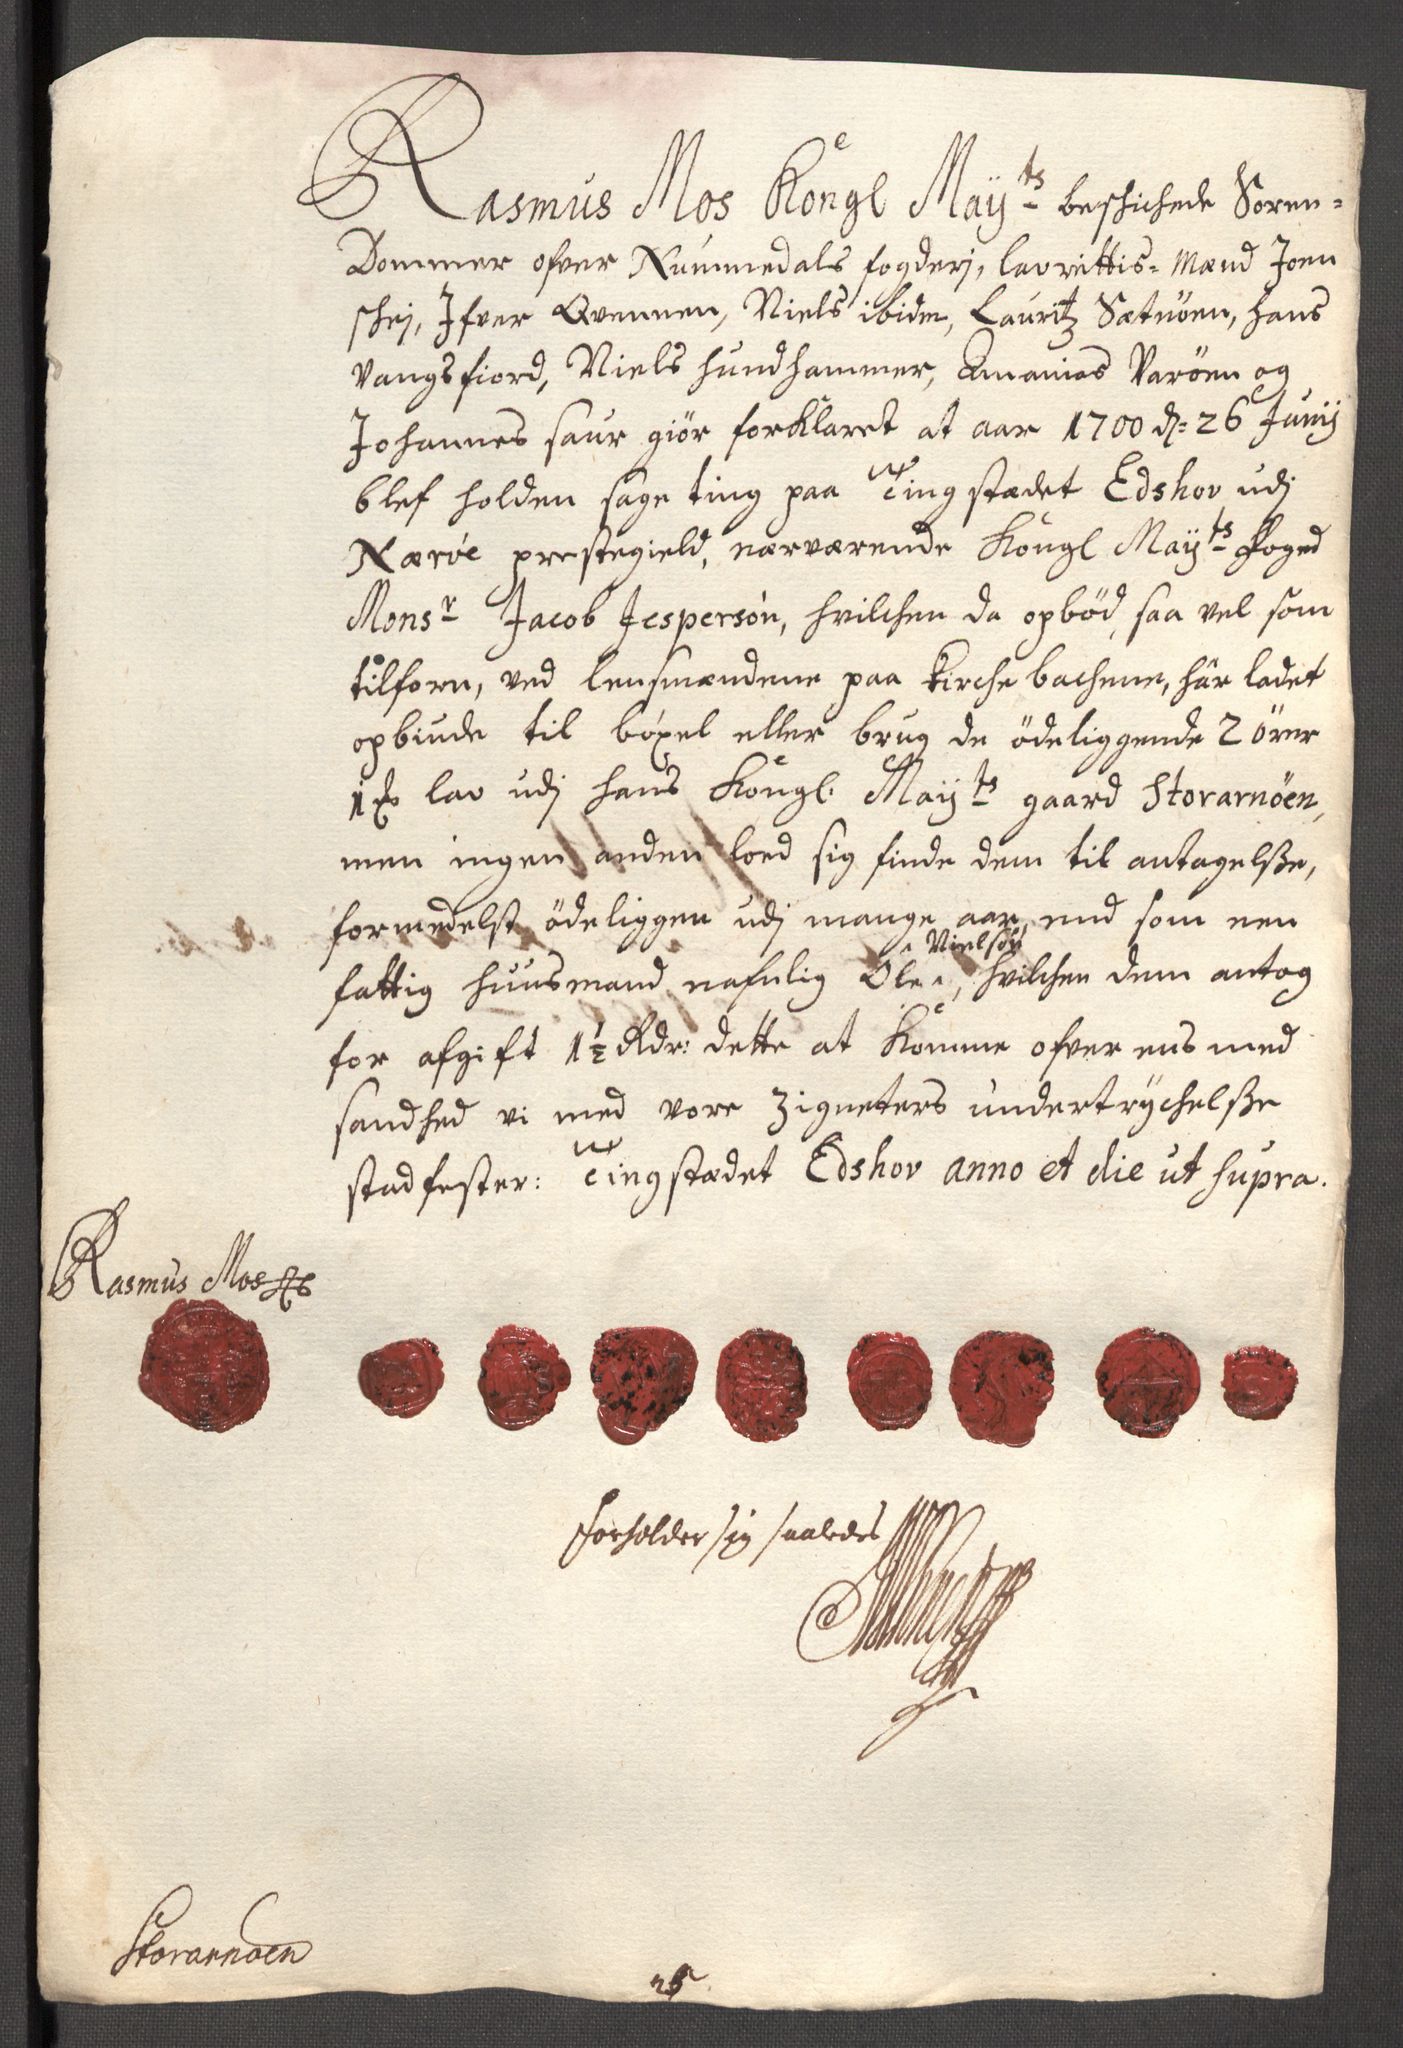 Rasmus Mos Kongl Maÿ:ts beschichede Soren-
Dommer ofver Nummedals fogderj, lavrettis-Mænd Joen
schej, Ifver Qvennen, Niels ibidm, Lauritz Sætnöen, hans
Vangsfiord, Niels hundhammer, Ananias Varöen og
Johannes saur giör forklaret at aar 1700 d: 26 Junij
blef holden sageting paa Tingstædet Edshov udj
Nærøe prestegield, nærværende Kongl Maÿ:ts Foged
Monsr Jacob Jespersøn, hvilchen da opböd, saa vel som
tilforn, ved lensmændene paa kirche bachene, har ladet
opbiude til böxel eller brug de ödeliggende 2 örer
lav udj hans Kongl. Maÿ:ts gaard Storarnöen,
men ingen anden loed sig finde dem til antagelsße,
formedelst ödeliggen udj mange aar, end som een
fattig huusmand nafnlig Ole Nielsön, hvilchen dem antog
for afgift 1½ Rdr: dette at komme ofver ens med
sandhed vi med vore Zigneters undertrÿchelsße
stadfester: Tingstædet Edshov anno et die ut supra.
Rasmus Mos
forholder sig saaledes
Storarnöen